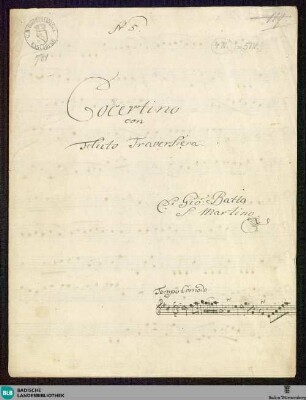 No 5.
781
Cocertino
con
Flauto Traversiera
Di Gio Batta
S Martino
Tempo Comodo
BLB
BADISCHE
LANDESBIBLIOTHEK
Baden-Württemberg